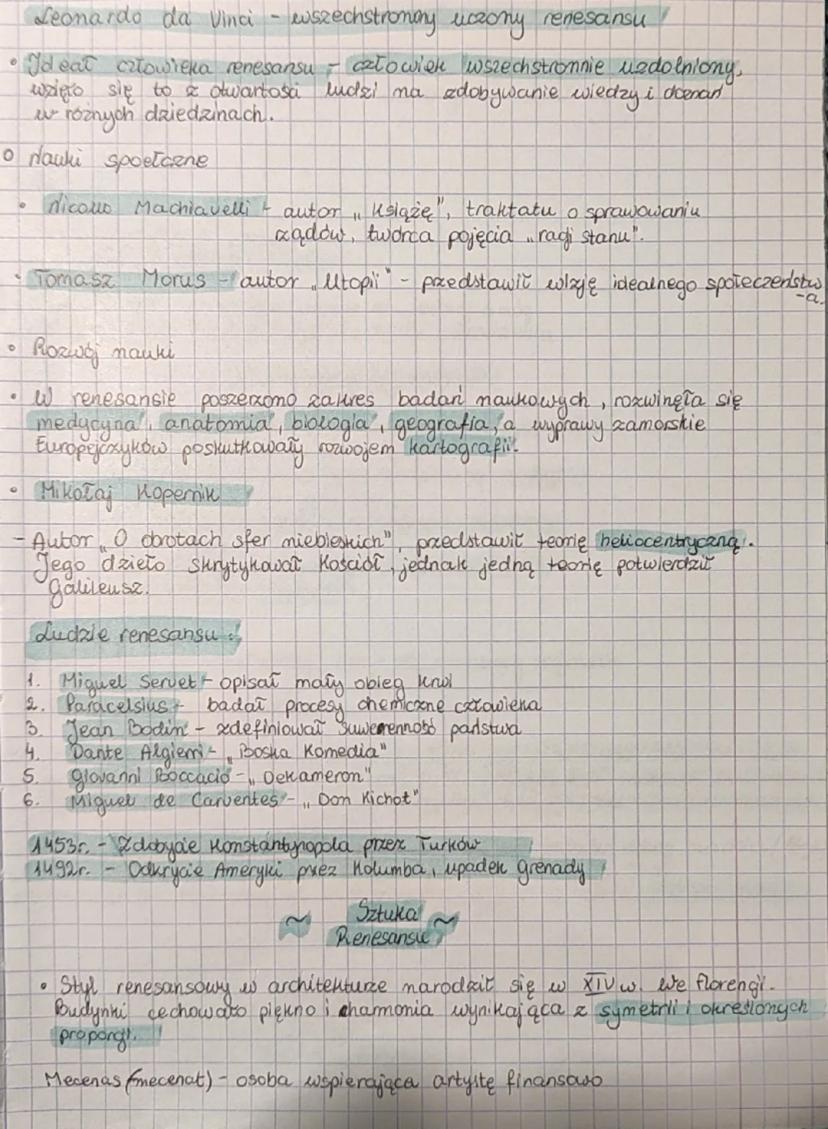 Leonardo da Vinci - wszechstronny uczony renesansu
• Ideał człowieka renesansu - człowiek wszechstronnie uzdolniony,
wzięło się to z otwartości ludzi na zdobywanie wiedzy i doznań
w różnych dziedzinach.
o Nauki społeczne
• Nicollo Machiavelli - autor „Książę", traktatu o sprawowaniu
rządów, twórca pojęcia „racji stanu".
• Tomasz Morus - autor „Utopii" - przedstawił wizję idealnego społeczeństw
-a.
• Rozwój nauki
• W renesansie poszerzono zakres badań naukowych, rozwinęła się
medycyna, anatomia, biologia, geografia, a wyprawy zamorskie
Europejczyków poskutkowały rozwojem kartografii.
• Mikołaj Kopernik
- Autor „O obrotach sfer niebieskich", przedstawił teorię heliocentryczną.
Jego dzieło skrytykował Kościół, jednak jedną teorię potwierdził
Galileusz.
Ludzie renesansu:
1. Miguel Servet - opisał mały obieg krwi
2. Paracelsius - badał procesy chemiczne człowieka
3. Jean Bodin - zdefiniował suwerenność państwa
4. Dante Algieri - „Boska Komedia"
5. Giovanni Boccacio - „Dekameron"
6. Miguel de Carventes - „Don Kichot"
1453r. - Zdobycie Konstantynopola przez Turków
1492r. - Odkrycie Ameryki przez Kolumba, upadek Grenady
~ Sztuka ~
Renesansu
• Styl renesansowy w architekturze narodził się w XIV w. we Florencji.
Budynki cechowało piękno i harmonia wynikająca z symetrii i określonych
proporcji.
Mecenas (mecenat) - osoba wspierająca artystę finansowo